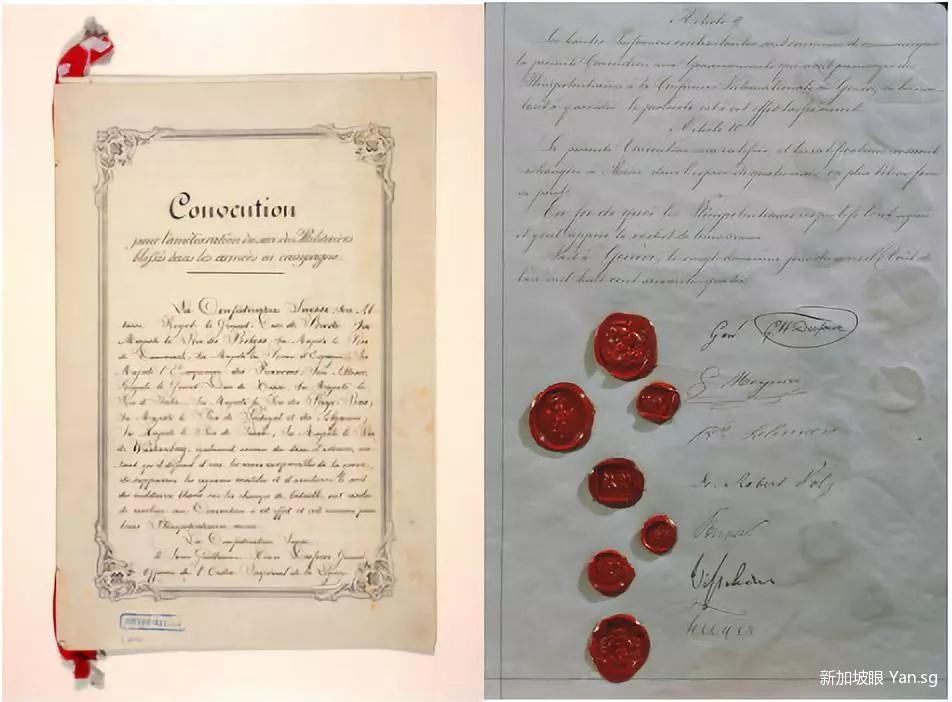 Convention
pour l'amélioration du sort des Militaires
blessés dans les armées en campagne.
La Confédération Suisse, Son Al
tesse Royal le Grand-Duc de Bade, Sa
Majesté le Roi des Belges, Sa Majesté le Roi
de Danemark, Sa Majesté la Reine d'Espagne, Sa
Majesté l'Empereur des Français, Son Altesse
Royale le Grand Duc de Hesse, Sa Majesté le
Roi d'Italie, Sa Majesté le Roi des Pays-Bas,
Sa Majesté le Roi de Portugal et des Algarves,
Sa Majesté le Roi de Prusse, Sa Majesté le Roi
de Wurtemberg, également animés du désir d'adoucir, au
tant qu'il dépend d'eux, les maux de la guerre,
de supprimer les rigueurs inutiles et d'améliorer le sort
des militaires blessés sur les champs de bataille, ont résolu
de conclure une Convention à cet effet et ont nommé pour
leurs Plénipotentiaires
La Confédération Suisse
Guillaume Henri Dufour
de l'Ordre Impérial de la Légion
Article 9
Les hautes Puissances contractantes sont convenues de communiquer
la présente Convention aux Gouvernements qui n'ont pu envoyer des
Plénipotentiaires à la Conférence Internationale de Genève, en les invi
tant à y accéder, le protocole est à cet effet laissé ouvert.
Article 10
La présente Convention sera ratifiée et les ratifications en seront
échangées à Berne dans l'espace de quatre mois, ou plus tôt si faire
se peut.
En foi de quoi les Plénipotentiaires respectifs l'ont signée
et y ont apposé le cachet de leurs armes.
Fait à Genève, le vingt deuxième jour du mois d'Août de
l'an mil huit cent soixante quatre.
Gén¹ G H Dufour
G Moynier
Dr. Robert Volz
Visschers
新加坡眼 Yan.sg